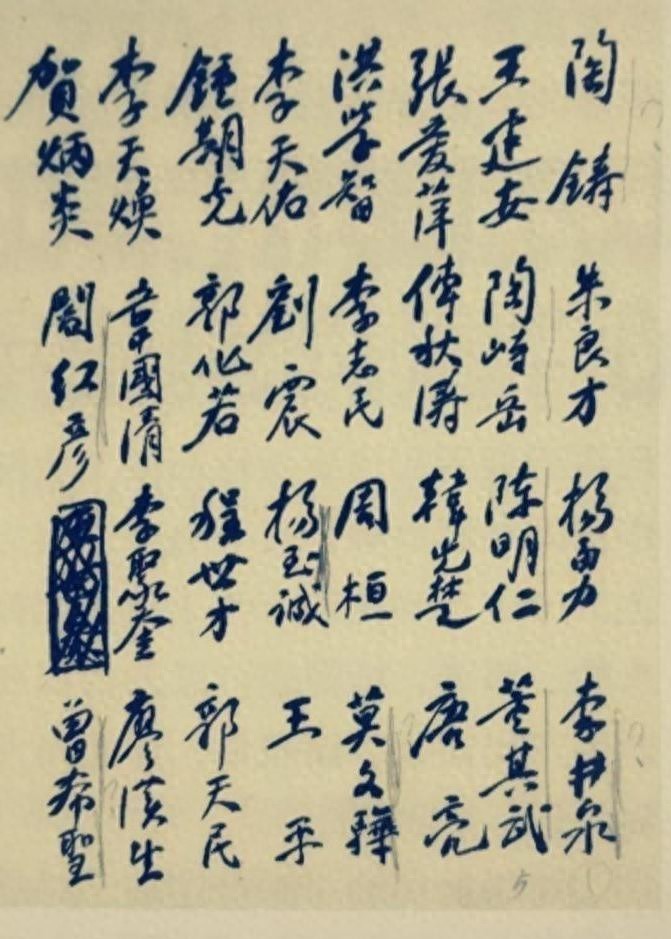 陶鑄 朱良才 楊勇力 李井泉
王建安 陶峙岳 陈明仁 董其武
張愛萍 傅秋濤 韓先楚 唐亮
洪學智 李志民 周桓 莫文驊
李天佑 劉震 楊至誠 王平
鍾期光 郭化若 程世才 郭天民
李天煥 韋國清 李聚奎 廖漢生
賀炳炎 閻红彦 曾希聖